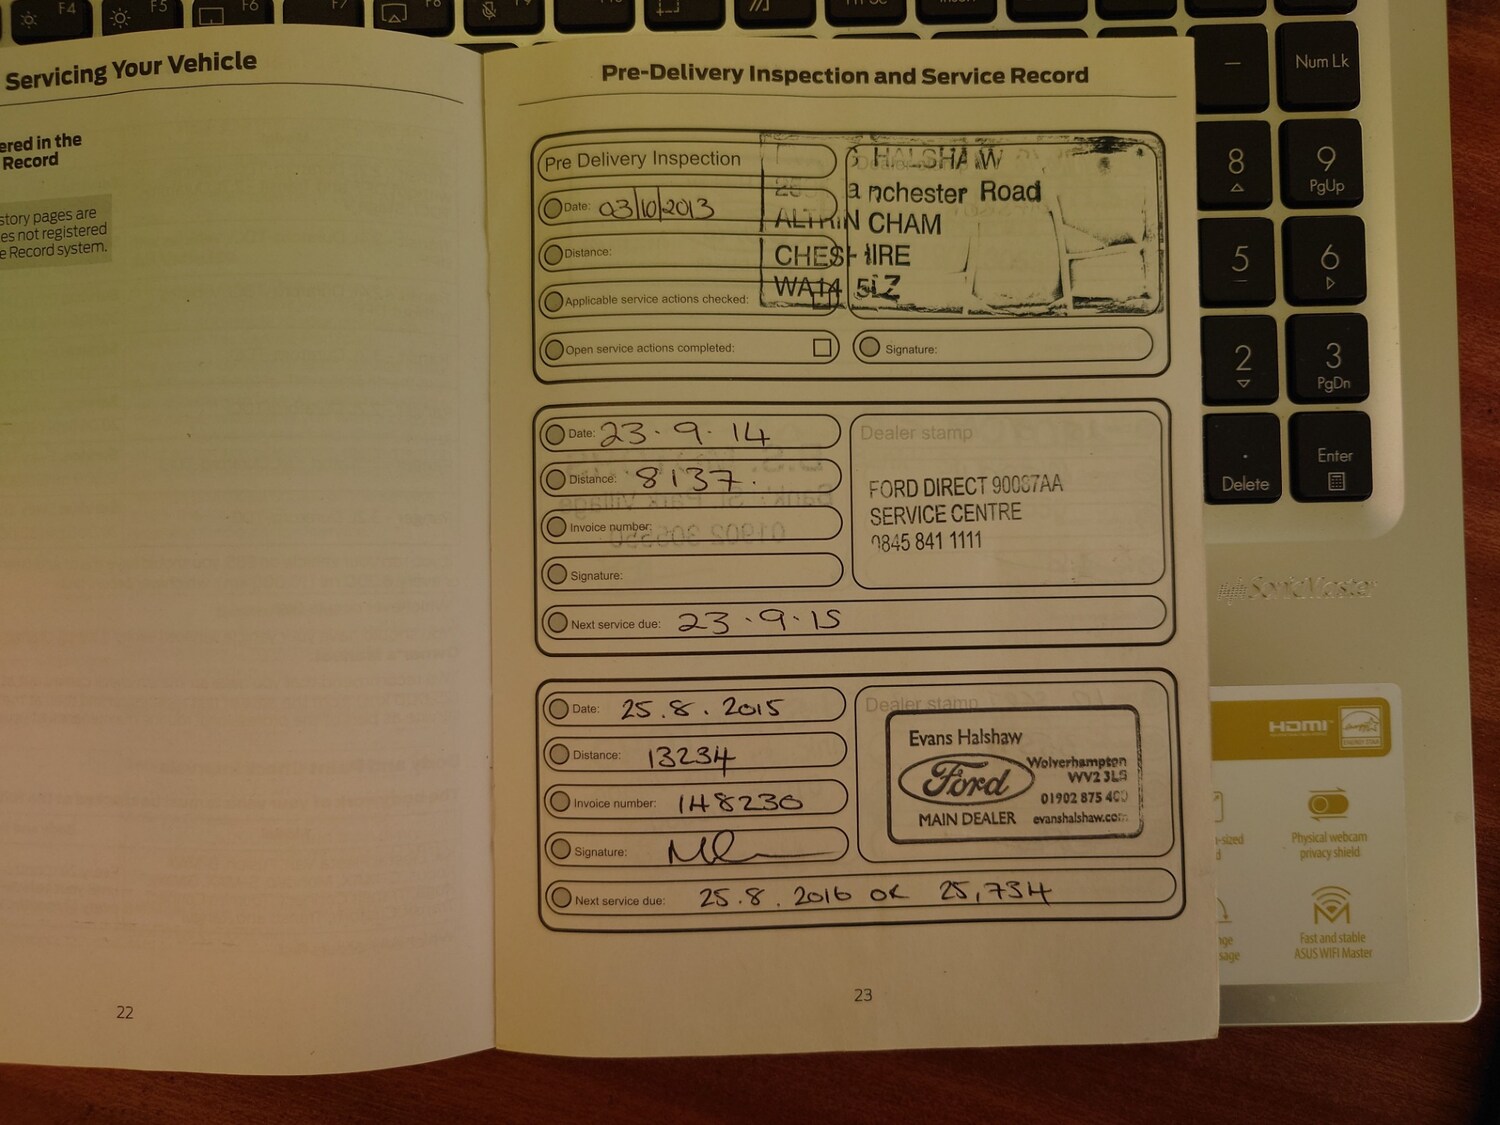 F4
F5
F6
F7
F8
F9
Num Lk
8
9
PgUp
5
6
2
3
PgDn
.
Delete
Enter
SonicMaster
HDMI
Physical webcam
privacy shield
Fast and stable
ASUS WIFI Master
Servicing Your Vehicle
ered in the
Record
story pages are
es not registered
e Record system.
22
Pre-Delivery Inspection and Service Record
Pre Delivery Inspection
Date: 03/10/2013
Distance:
Applicable service actions checked:
Open service actions completed:
HALSHAW
anchester Road
ALTRINCHAM
CHESHIRE
WA14 5LZ
Signature:
Date: 23.9.14
Distance: 8137.
Invoice number:
Signature:
Next service due: 23.9.15
Dealer stamp
FORD DIRECT 90087AA
SERVICE CENTRE
0845 841 1111
Date: 25.8.2015
Distance: 13234
Invoice number: 148230
Signature:
Next service due: 25.8.2016 OR 25,734
Dealer stamp
Evans Halshaw
Ford
MAIN DEALER
Wolverhampton
WV2 3LS
01902 875 400
evanshalshaw.com
23